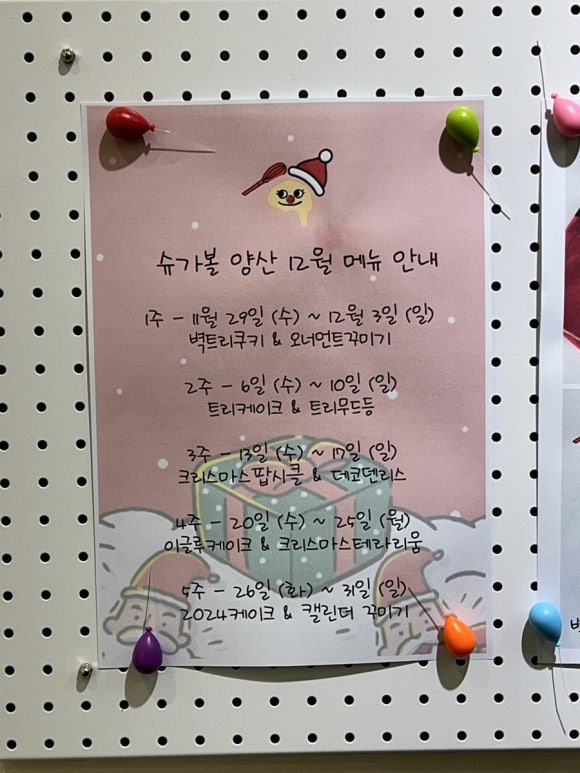 슈가볼 양산 12월 메뉴 안내
1주 - 11월 29일 (수) ~ 12월 3일 (일)
벽트리쿠키 & 오너먼트꾸미기
2주 - 6일 (수) ~ 10일 (일)
트리케이크 & 트리무드등
3주 - 13일 (수) ~ 17일 (일)
크리스마스팝시클 & 데코덴리스
4주 - 20일 (수) ~ 25일 (월)
이글루케이크 & 크리스마스테라리움
5주 - 26일 (화) ~ 31일 (일)
2024케이크 & 캘린더 꾸미기